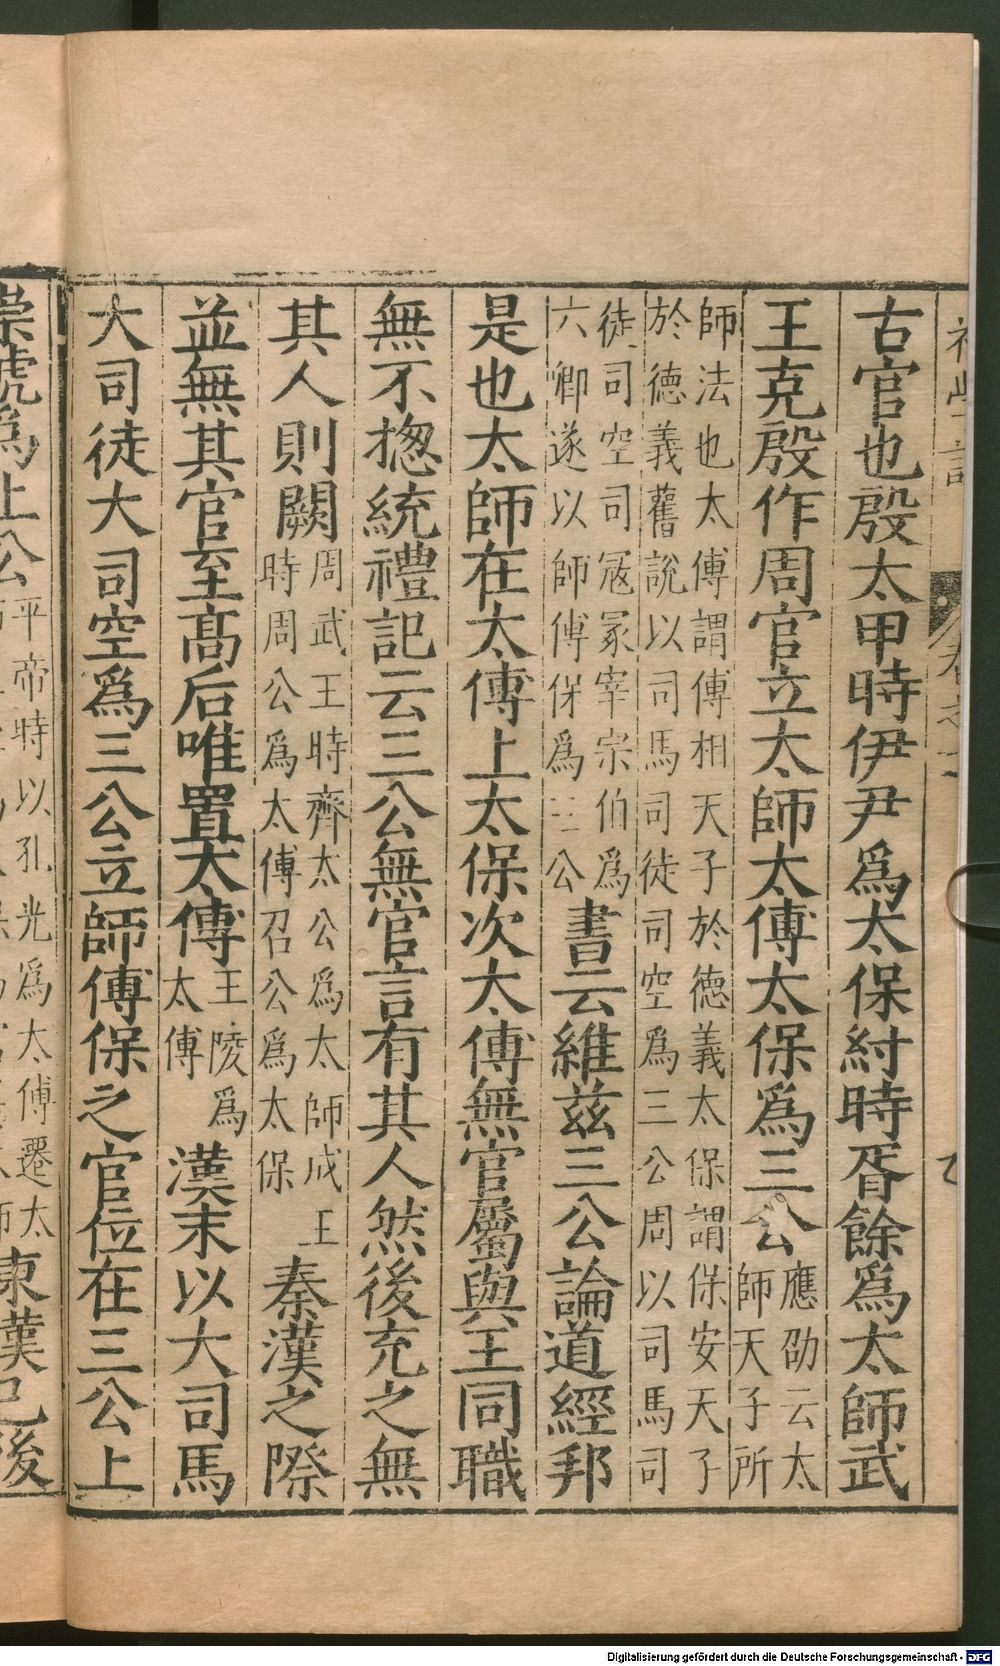 古官也殷太甲時伊尹爲太保紂時胥餘爲太師武
王克殷作周官立太師太傅太保爲三公應劭云太
師天子所
師法也太傅謂傅相天子於德義太保謂保安天子
於德義舊說以司馬司徒司空爲三公周以司馬司
徒司空司冦冢宰宗伯爲
六卿遂以師傅保爲三公
書云維茲三公論道經邦
是也太師在太傅上太保次太傅無官屬與王同職
無不揔統禮記云三公無官言有其人然後充之無
其人則闕
周武王時齊太公爲太師成王
時周公爲太傅召公爲太保
秦漢之際
並無其官至髙后唯置太傅
王陵爲
太傅
漢末以大司馬
大司徒大司空爲三公立師傅保之官位在三公上
崇號爲上公
平帝時以孔光爲太傅遷太
東漢已後
Digitalisierung gefördert durch die Deutsche Forschungsgemeinschaft - DFG